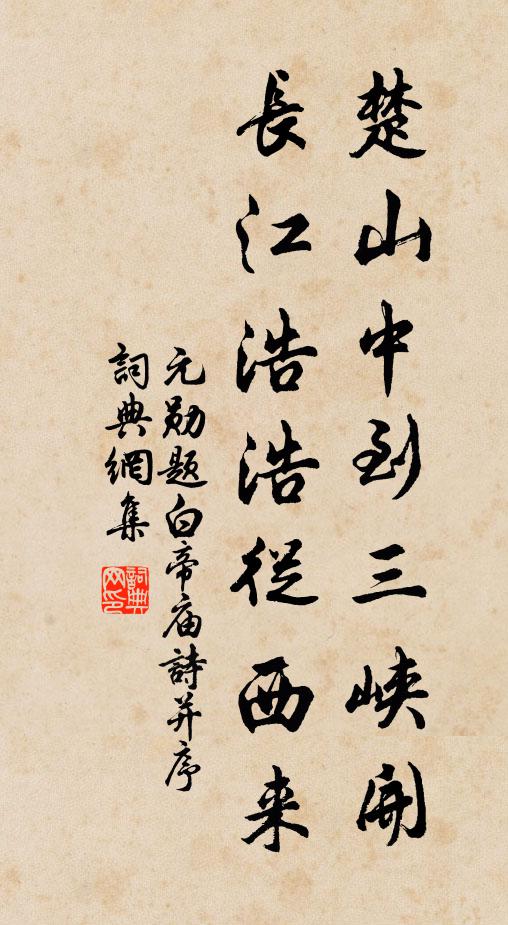 楚山中到三峡開
長江浩浩從西来
元勛题白帝庙詩并序
詞典網集
詞典网印